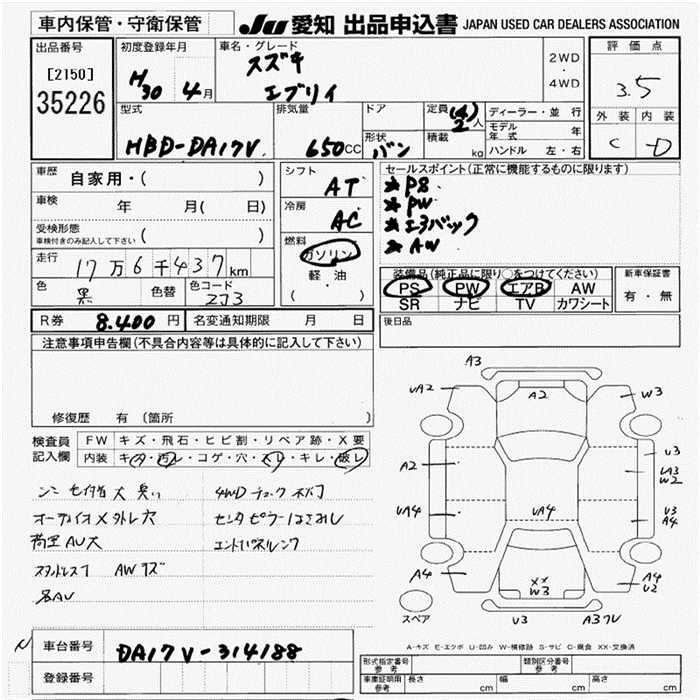 車内保管・守衛保管
JU 愛知 出品申込書 JAPAN USED CAR DEALERS ASSOCIATION
出品番号
[2150]
35226
初度登録年月
H30 4月
車名・グレード
スズキ
エブリイ
2WD
・
4WD
評価点
3.5
外装 内装
C D
型式
HBD-DA17V
排気量
650CC
ドア
形状
バン
定員 (4) 2人
積載 kg
ディーラー・並行
モデル年式 年
ハンドル 左・右
車歴 自家用・( )
車検 年 月( 日)
受検形態
車検付きのみ記入して下さい ( )
走行 17万6千437km
色 黒 色替 色コード ZJ3
シフト AT
冷房 AC
燃料
ガソリン
軽・油
( )
セールスポイント(正常に機能するものに限ります)
★PS
★PW
★エアバック
★AW
装備品(純正品に限り○をつけてください)
PS PW エアB AW
SR ナビ TV カワシート
新車保証書
有・無
R券 8.400円 名変通知期限 月 日
後日品
注意事項申告欄(不具合内容等は具体的に記入して下さい)
修復歴 有(箇所 )
検査員記入欄
FW キズ・飛石・ヒビ割・リペア跡・X要
内装 キズ・汚レ・コゲ・穴・スレ・キレ・破レ
4WDチェック
オーディオ
AWキズ
各AU
A3
UA2 A2 W3
A2 U3
UA3
W2
UA4 UA4 U3
A4
A4 XX
W3 A4
U2
スペア U3
A-キズ E-エクボ U-凹み W-補修跡 S-サビ C-腐食 XX-交換済
車台番号 DA17V-314188
登録番号
形式指定番号 参考 類別区分番号 参考
車庫証明用 参考 長さ cm 幅 cm 高さ cm